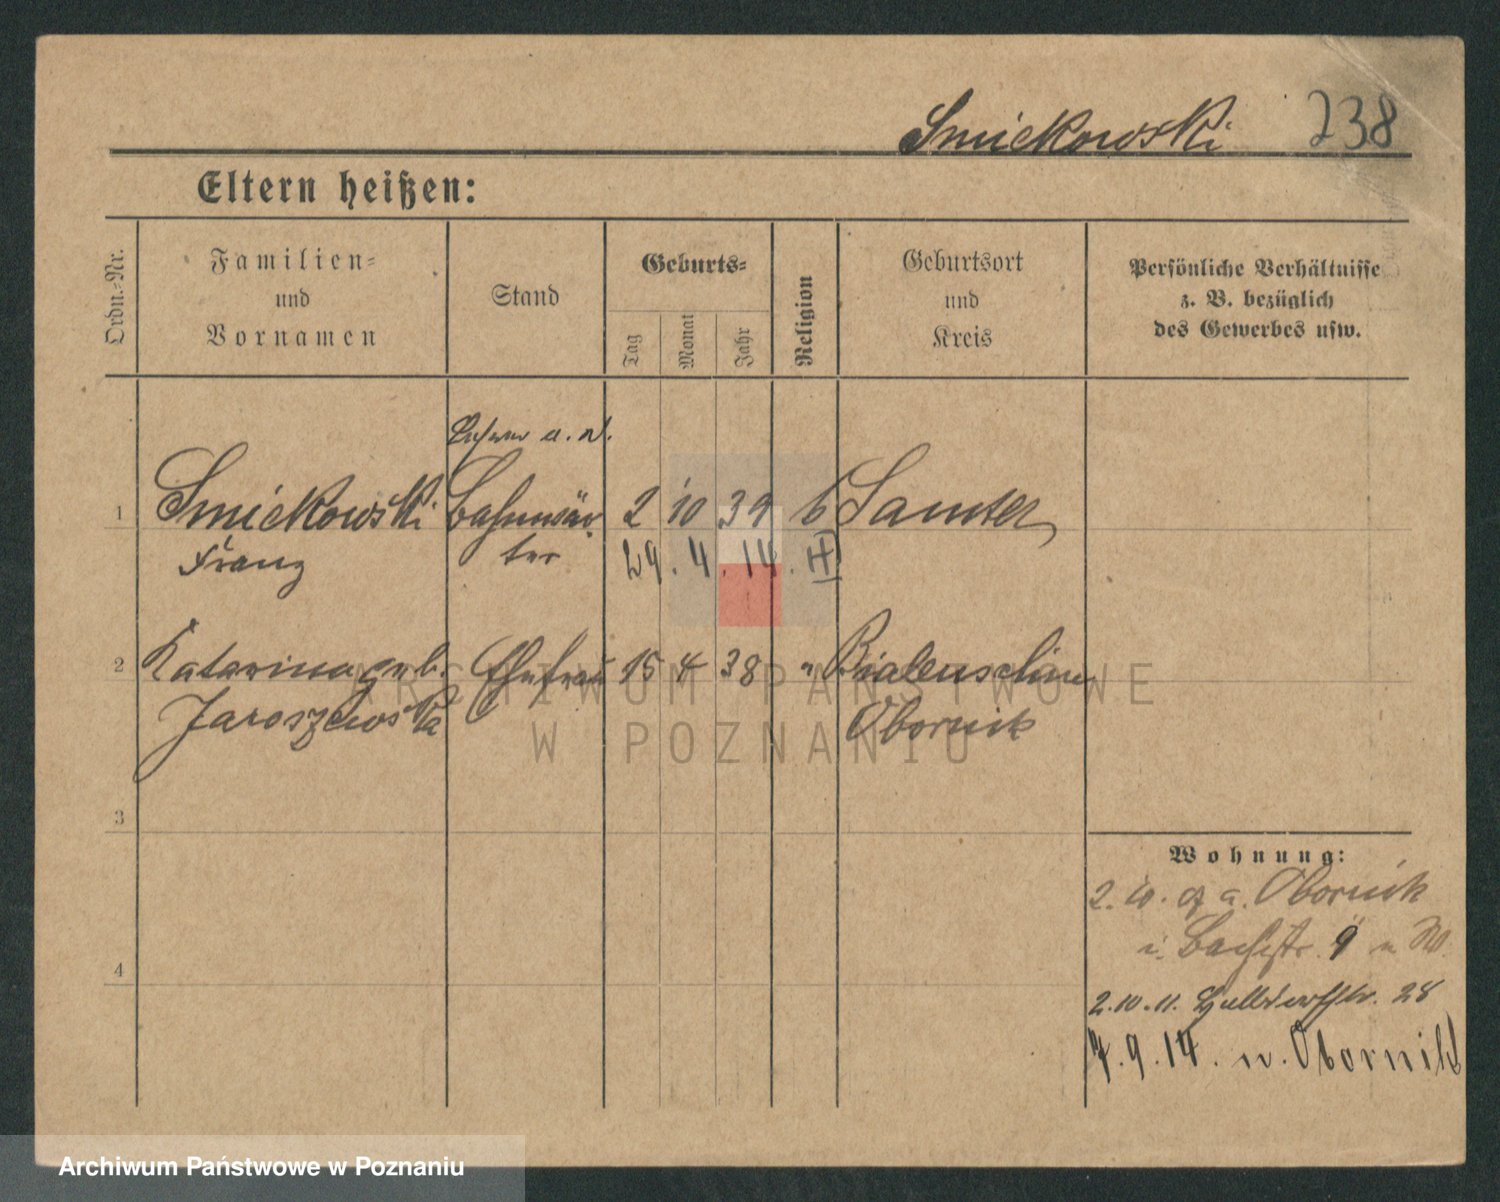 Smickowski 238
Eltern heißen:
Ordn.-Nr.
Familien-
und
Vornamen
Stand
Geburts-
Tag
Monat
Jahr
Religion
Geburtsort
und
Kreis
Persönliche Verhältnisse
z. B. bezüglich
des Gewerbes usw.
a. D.
1 Smickowski Bahnwär- 2 10 39 6 Samter
Franz ter 29. 4. 14.
2 Katarina geb. Ehefrau 15 4 38 " Bialenschin
Jaroszewska Obornik
3
Wohnung:
2. 10. 07 a. Obornik
i. Bachstr. 9 n W.
4
2.10.11. 28
7.9.14. n. Obornik
ARCHIWUM PAŃSTWOWE
W POZNANIU
Archiwum Państwowe w Poznaniu